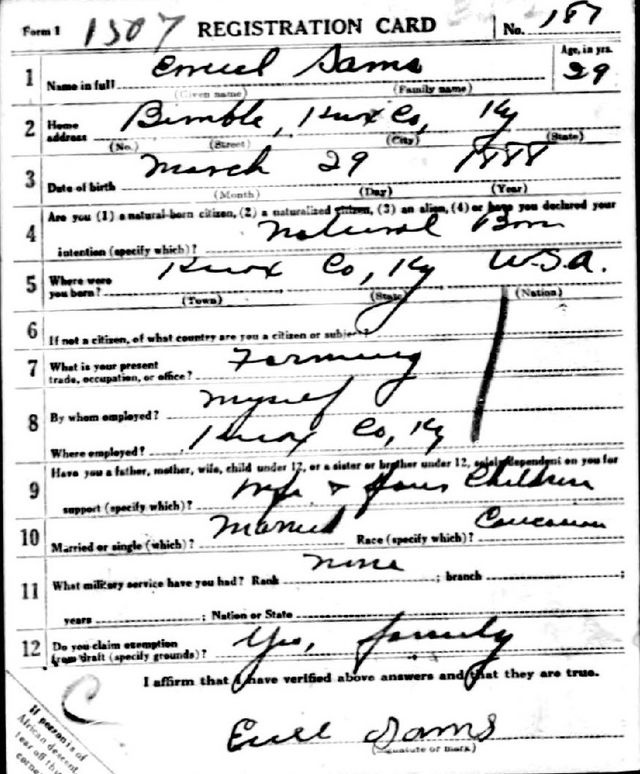 Form 1 1507 REGISTRATION CARD No. 187
1 Name in full Emuel Sams Age, in yrs. 29
(Given name) (Family name)
2 Home address Bimble, Knox Co, Ky
(No.) (Street) (City) (State)
3 Date of birth March 29 1888
(Month) (Day) (Year)
4 Are you (1) a natural-born citizen, (2) a naturalized citizen, (3) an alien, (4) or have you declared your
intention (specify which)? Natural Born
5 Where were you born? Knox Co, Ky U.S.A.
(Town) (State) (Nation)
6 If not a citizen, of what country are you a citizen or subject?
7 What is your present trade, occupation, or office? Farming
8 By whom employed? Myself
Where employed? Knox Co, Ky
9 Have you a father, mother, wife, child under 12, or a sister or brother under 12, solely dependent on you for
support (specify which)? Wife & four Children
10 Married or single (which)? Married Race (specify which)? Caucasian
11 What military service have you had? Rank None ; branch ;
years ; Nation or State
12 Do you claim exemption from draft (specify grounds)? Yes, family
I affirm that I have verified above answers and that they are true.
C
Euel Sams
(Signature or mark)
If person is of
African descent
tear off this
corner